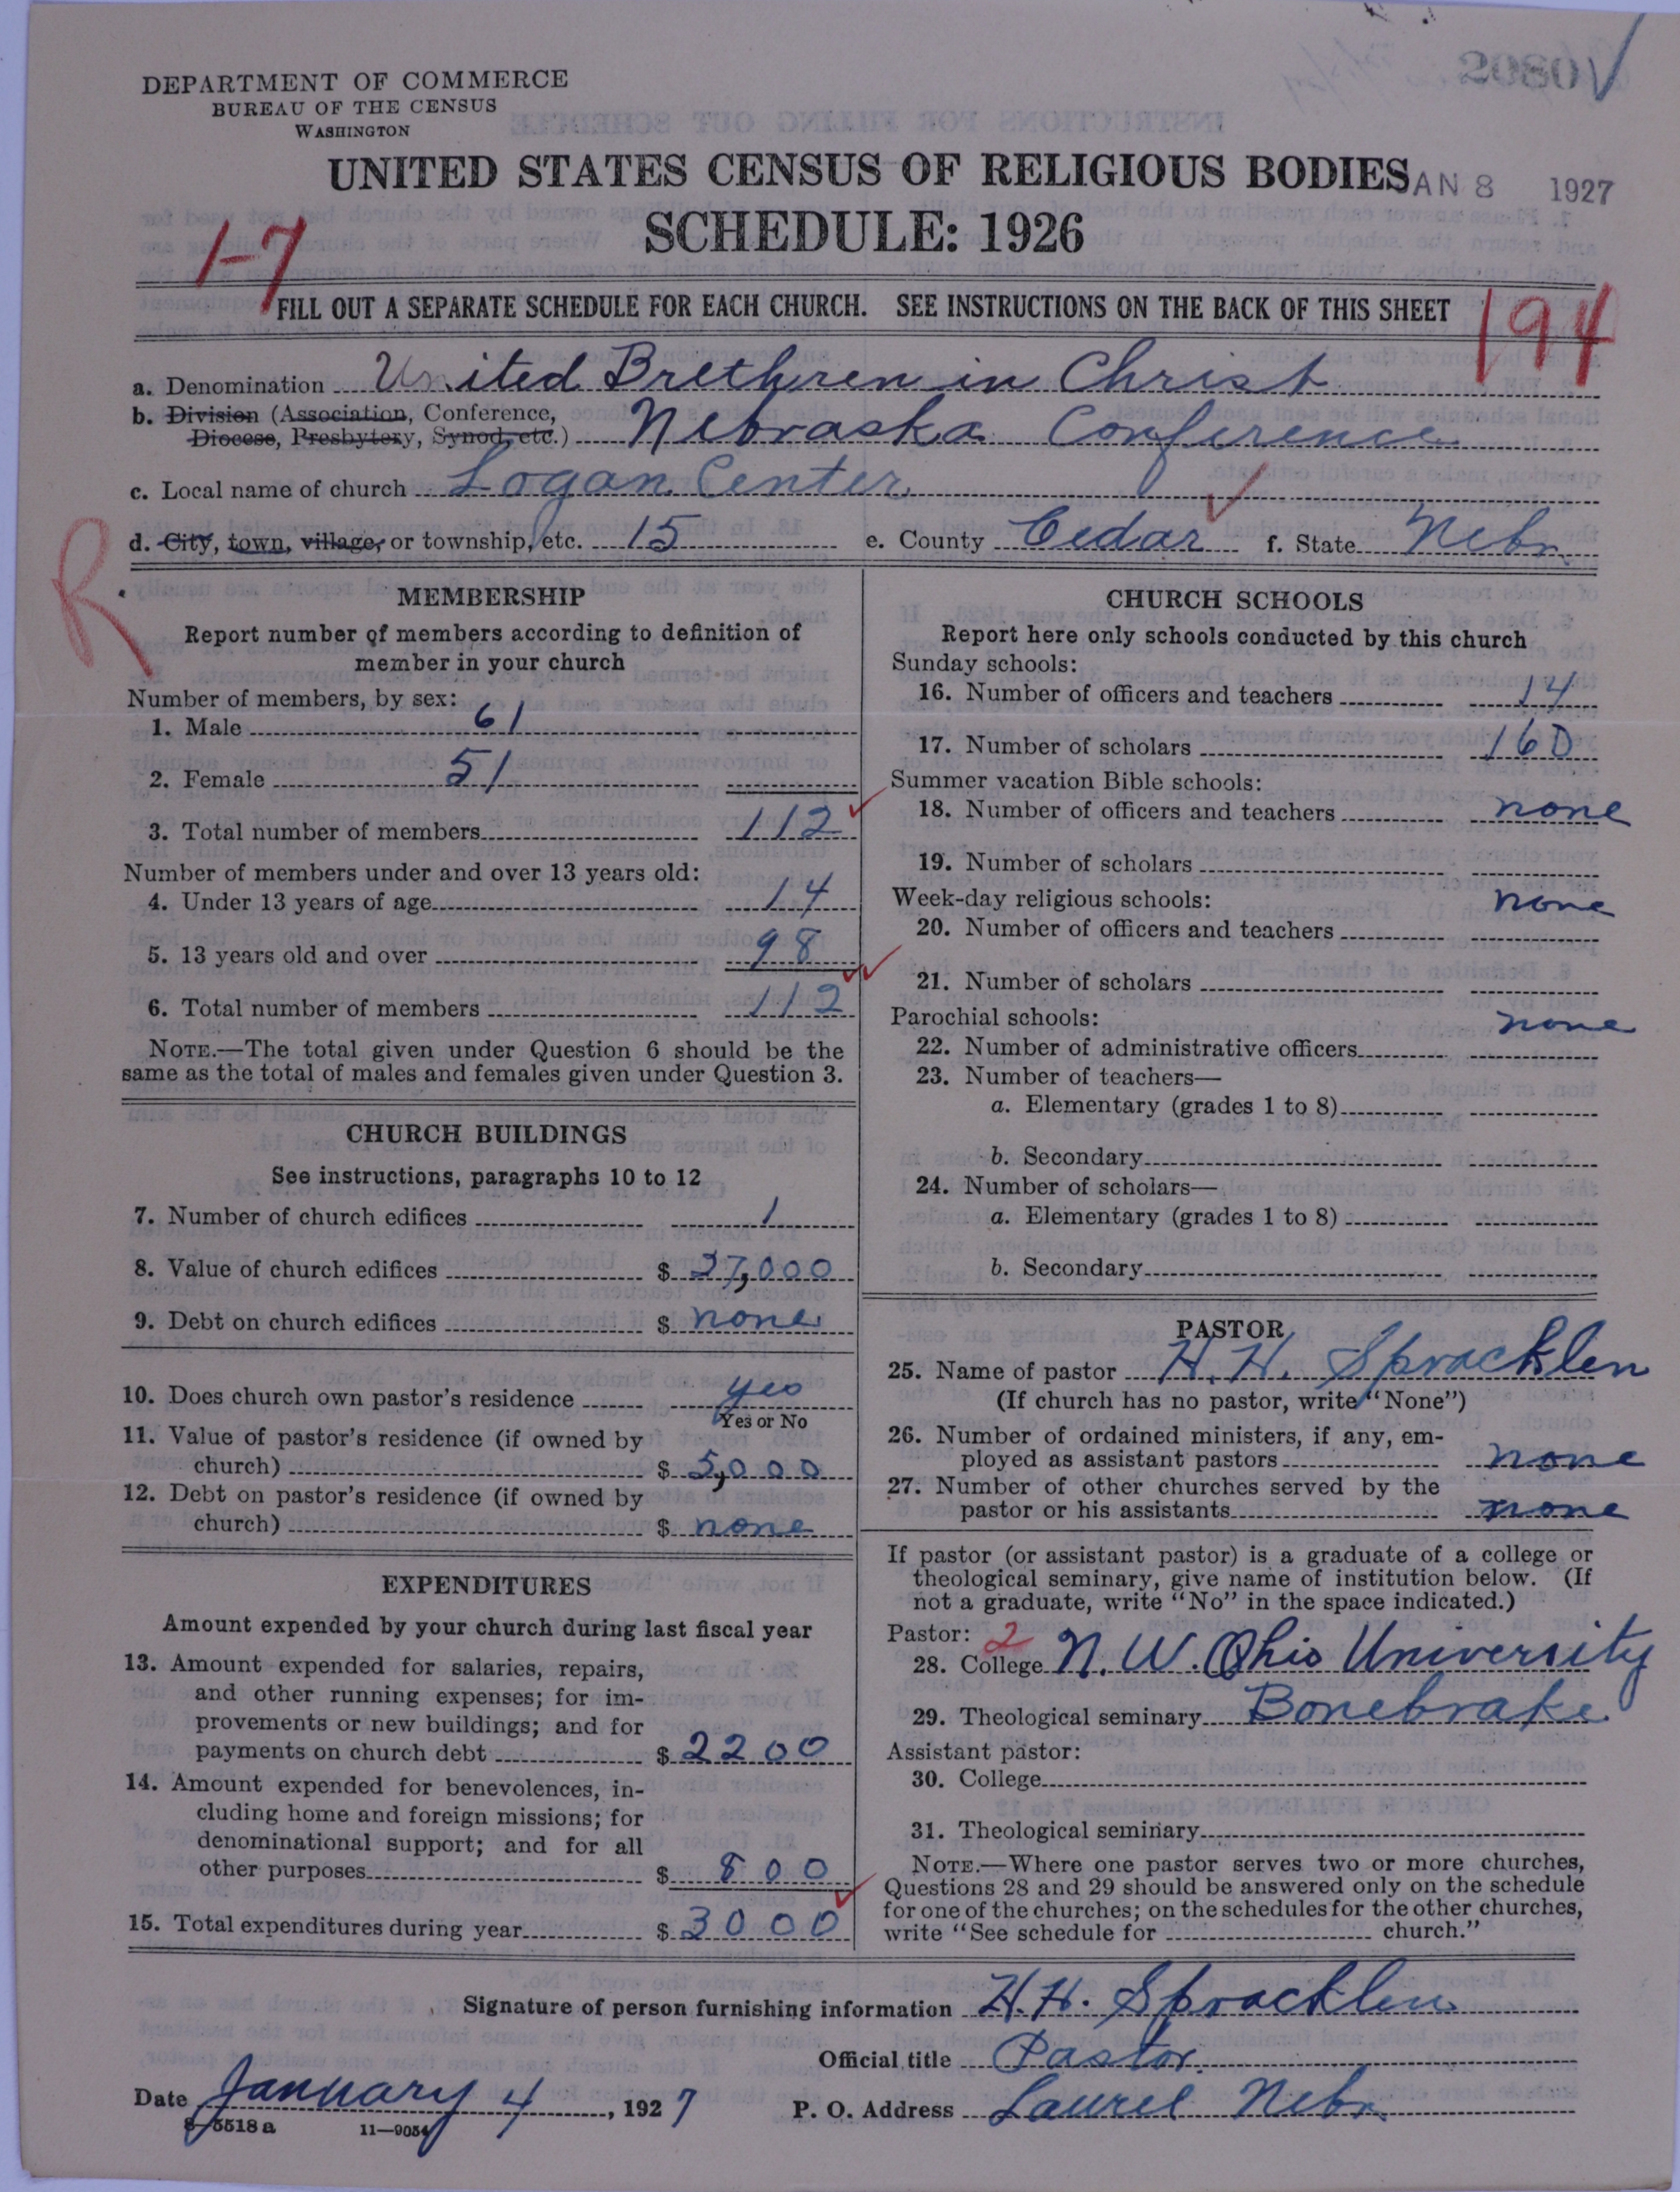 2080
DEPARTMENT OF COMMERCE
BUREAU OF THE CENSUS
WASHINGTON
UNITED STATES CENSUS OF RELIGIOUS BODIES
AN 8 1927
SCHEDULE: 1926
1-7
FILL OUT A SEPARATE SCHEDULE FOR EACH CHURCH. SEE INSTRUCTIONS ON THE BACK OF THIS SHEET
194
a. Denomination United Brethren in Christ
b. Division (Association, Conference,
Diocese, Presbytery, Synod, etc.) Nebraska Conference
c. Local name of church Logan Center
d. City, town, village, or township, etc. 15 e. County Cedar f. State Nebr.
R
MEMBERSHIP
Report number of members according to definition of
member in your church
Number of members, by sex:
1. Male 61
2. Female 51
3. Total number of members 112
Number of members under and over 13 years old:
4. Under 13 years of age 14
5. 13 years old and over 98
6. Total number of members 112
NOTE.—The total given under Question 6 should be the
same as the total of males and females given under Question 3.
CHURCH BUILDINGS
See instructions, paragraphs 10 to 12
7. Number of church edifices 1
8. Value of church edifices $ 27,000
9. Debt on church edifices $ none
10. Does church own pastor's residence yes
Yes or No
11. Value of pastor's residence (if owned by
church) $ 5,000
12. Debt on pastor's residence (if owned by
church) $ none
EXPENDITURES
Amount expended by your church during last fiscal year
13. Amount expended for salaries, repairs,
and other running expenses; for im-
provements or new buildings; and for
payments on church debt $ 2200
14. Amount expended for benevolences, in-
cluding home and foreign missions; for
denominational support; and for all
other purposes $ 800
15. Total expenditures during year $ 3000
CHURCH SCHOOLS
Report here only schools conducted by this church
Sunday schools:
16. Number of officers and teachers 14
17. Number of scholars 160
Summer vacation Bible schools:
18. Number of officers and teachers none
19. Number of scholars
Week-day religious schools: none
20. Number of officers and teachers
21. Number of scholars
Parochial schools: none
22. Number of administrative officers
23. Number of teachers—
a. Elementary (grades 1 to 8)
b. Secondary
24. Number of scholars—
a. Elementary (grades 1 to 8)
b. Secondary
PASTOR
25. Name of pastor H. H. Spracklen
(If church has no pastor, write "None")
26. Number of ordained ministers, if any, em-
ployed as assistant pastors none
27. Number of other churches served by the
pastor or his assistants none
If pastor (or assistant pastor) is a graduate of a college or
theological seminary, give name of institution below. (If
not a graduate, write "No" in the space indicated.)
Pastor: 2
28. College N. W. Ohio University
29. Theological seminary Bonebrake
Assistant pastor:
30. College
31. Theological seminary
NOTE.—Where one pastor serves two or more churches,
Questions 28 and 29 should be answered only on the schedule
for one of the churches; on the schedules for the other churches,
write "See schedule for church."
Signature of person furnishing information H. H. Spracklen
Official title Pastor.
Date January 4, 1927 P. O. Address Laurel Nebr.
8-5518a 11—9054